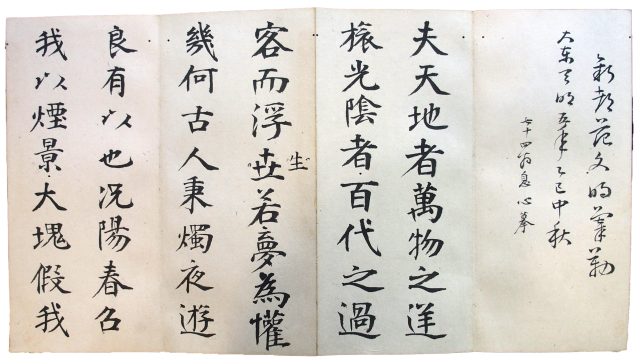 新都范文明藁勒
大东天明五年乙巳中秋
七十四翁息心摹
夫天地者萬物之逆
旅光陰者百代之過
客而浮世若夢為懽
生
幾何古人秉燭夜遊
良有以也况陽春召
我以煙景大塊假我